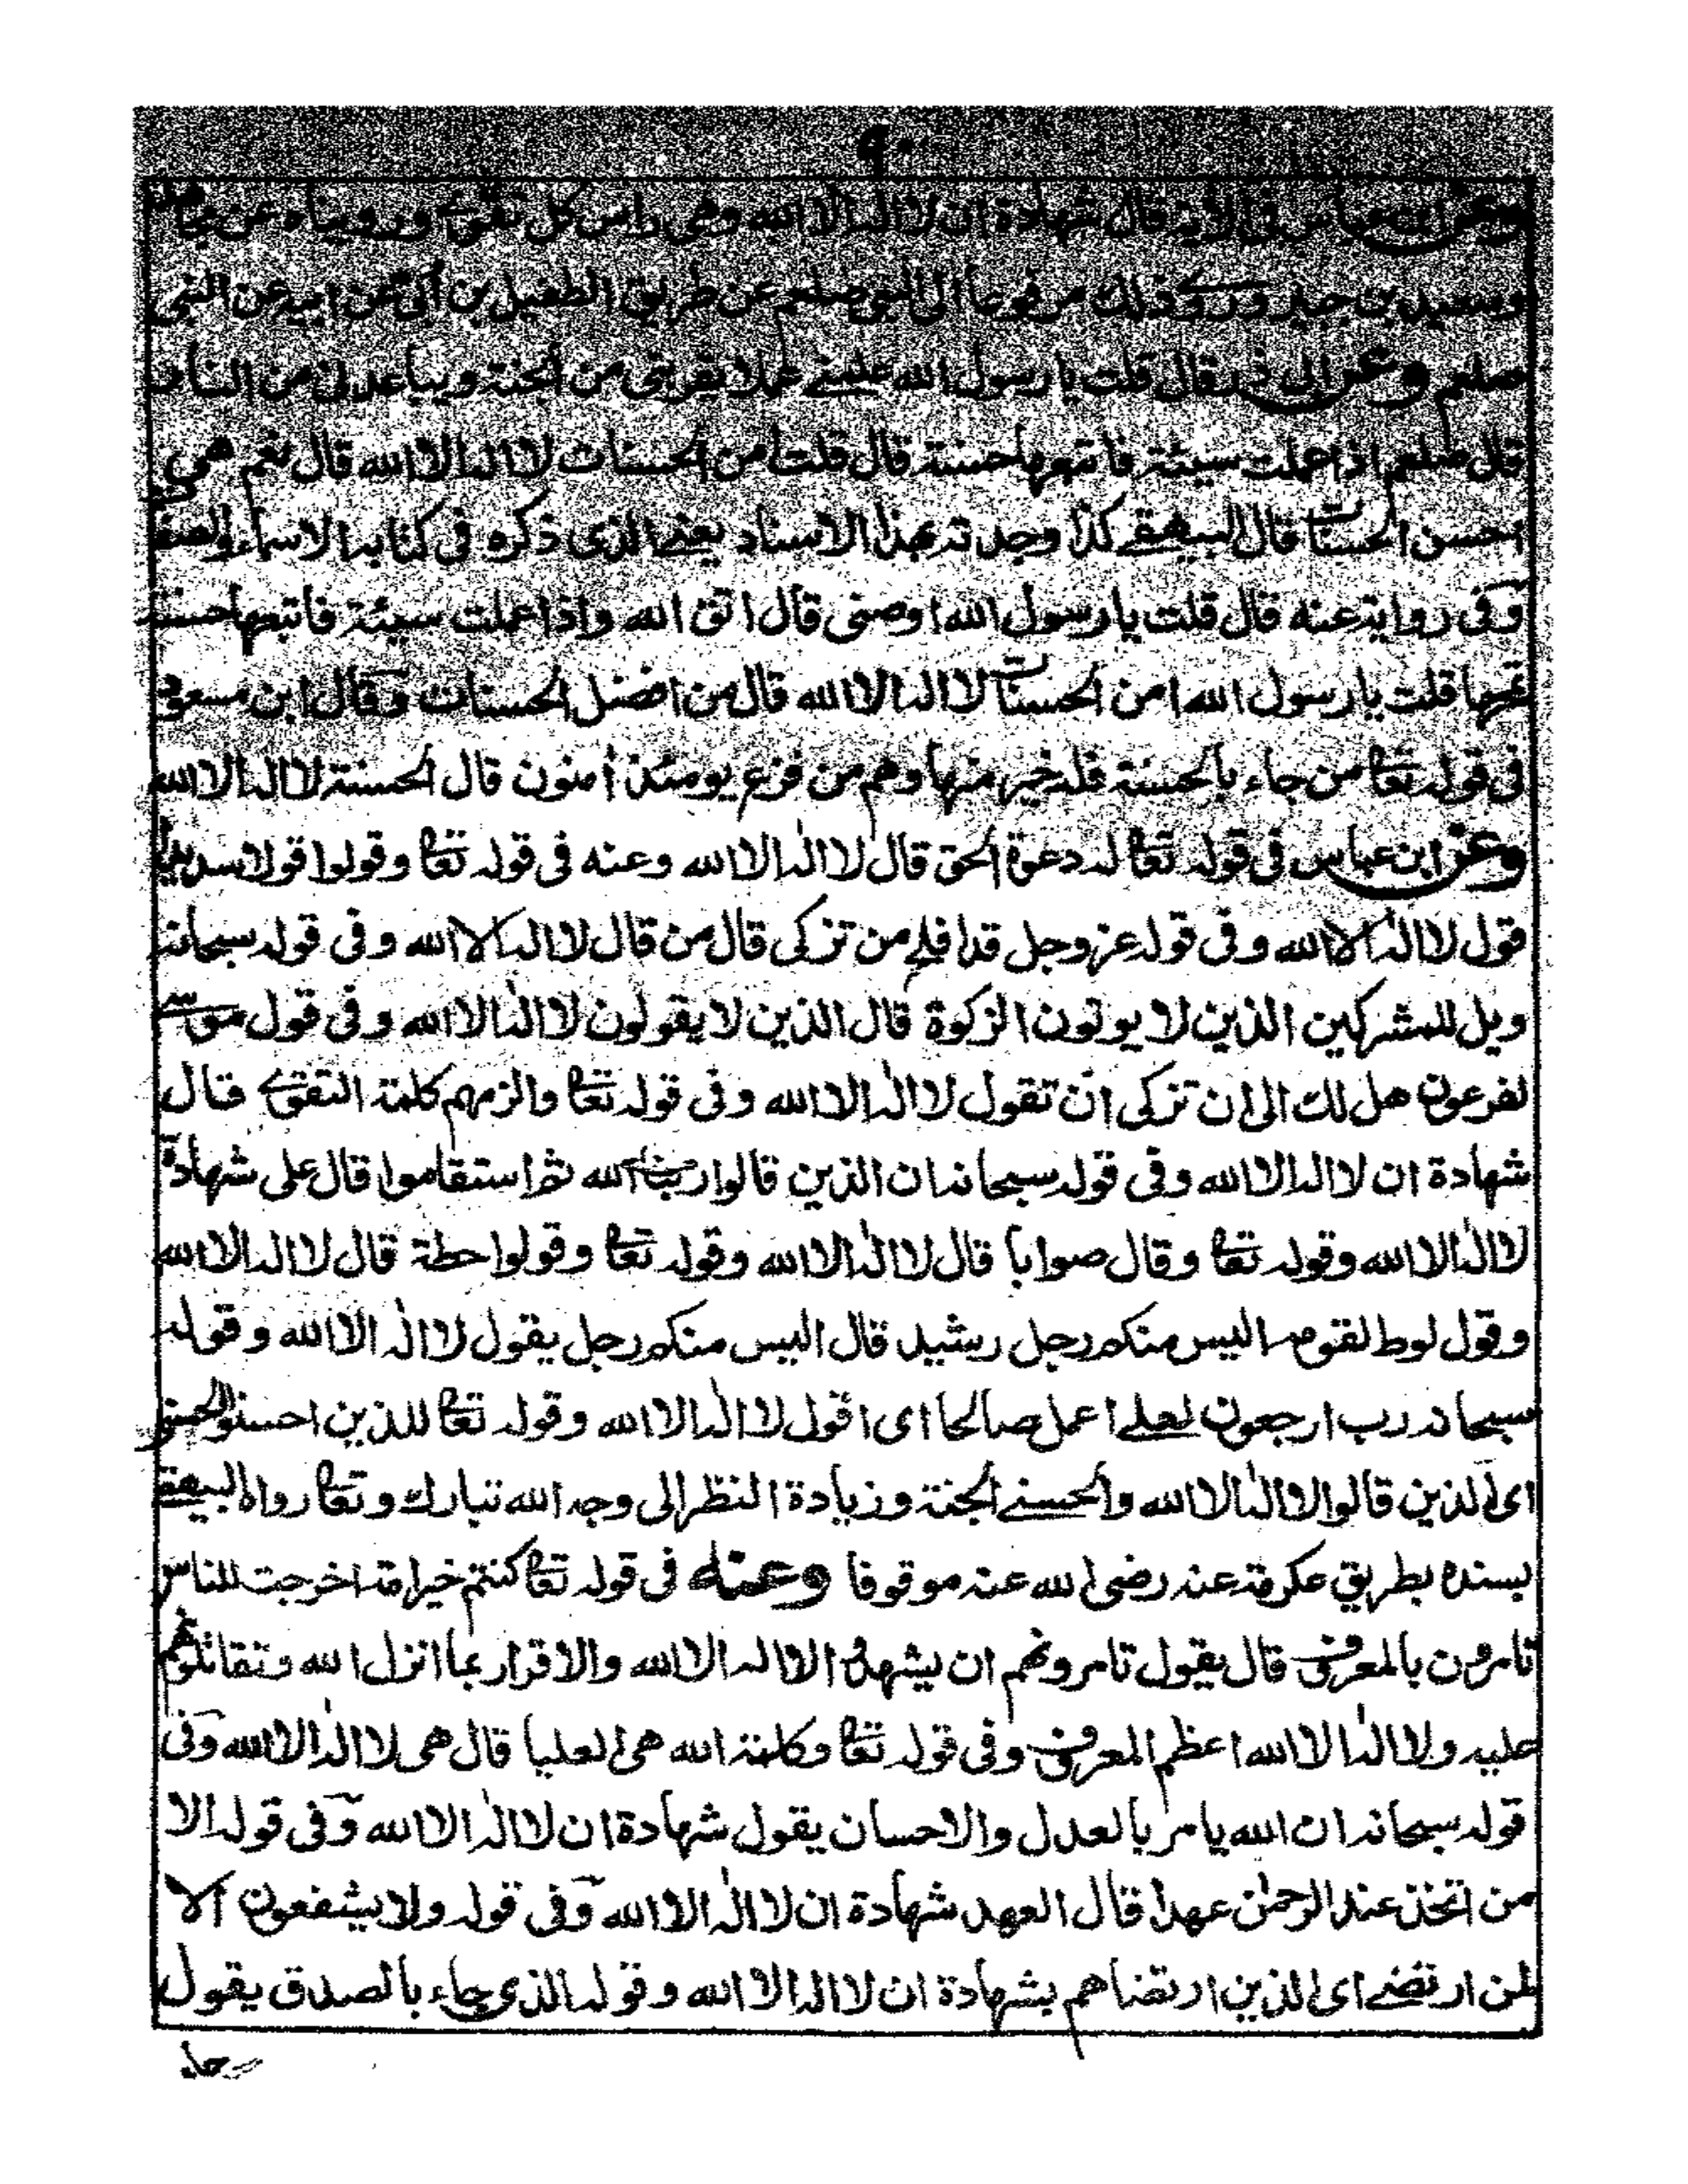 ٩٠
وعن ابن عباس في الآية قال شهادة ان لا اله الا الله وهي راس كل تقوى ورويناه عن مجاهد
وسعيد بن جبير وروى ذلك مرفوعا الى النبي صلعم عن طريق الطفيل بن أبي عن ابيه عن النبي
صلعم وعن ابي ذر قال قلت يا رسول الله علمني عملا يقربني من الجنة ويباعدني من النار
قال صلعم اذا عملت سيئة فاتبعها حسنة قال قلت امن الحسنات لا اله الا الله قال نعم هي
احسن الحسنات قال البيهقي كذا وجدته بهذا الاسناد يعنى الذى ذكره فى كتابه الاسماء والصفا
وفى رواية عنه قال قلت يا رسول الله اوصنى قال اتق الله واذا عملت سيئة فاتبعها حسنة
تمحها قلت يا رسول الله امن الحسنات لا اله الا الله قال من افضل الحسنات وقال ابن مسعود
فى قوله تعا من جاء بالحسنة فله خير منها وهم من فزع يومئذ أمنون قال الحسنة لا اله الا الله
وعن ابن عباس فى قوله تعا له دعوة الحق قال لا اله الا الله وعنه فى قوله تعا وقولوا قولا سديدا
قول لا اله الا الله وفى قوله عز وجل قد افلح من تزكى قال من قال لا اله الا الله وفى قوله سبحانه
ويل للمشركين الذين لا يوتون الزكوة قال الذين لا يقولون لا اله الا الله وفى قول موسى
لفرعون هل لك الى ان تزكى ان تقول لا اله الا الله وفى قوله تعا والزمهم كلمة التقوى قال
شهادة ان لا اله الا الله وفى قوله سبحانه ان الذين قالوا ربنا الله ثم استقاموا قال على شهادة
لا اله الا الله وقوله تعا وقال صوابا قال لا اله الا الله وقوله تعا وقولوا حطة قال لا اله الا الله
وقول لوط لقومه اليس منكم رجل رشيد قال اليس منكم رجل يقول لا اله الا الله وقوله
سبحانه رب ارجعون لعلى اعمل صالحا اى اقول لا اله الا الله وقوله تعا للذين احسنوا الحسنى
اى الذين قالوا لا اله الا الله والحسنى الجنة وزيادة النظر الى وجه الله تبارك وتعا رواه البيهقى
بسنده بطريق عكرمة عنه رضى الله عنه موقوفا وعنه فى قوله تعا كنتم خير امة اخرجت للناس
تامرون بالمعروف قال يقول تامرونهم ان يشهدوا ان لا اله الا الله والاقرار بما انزل الله وتقاتلونهم
عليه ولا اله الا الله اعظم المعروف وفى قوله تعا وكلمة الله هى العليا قال هى لا اله الا الله وفى
قوله سبحانه ان الله يامر بالعدل والاحسان يقول شهادة ان لا اله الا الله وفى قوله الا
من اتخذ عند الرحمٰن عهدا قال العهد شهادة ان لا اله الا الله وفى قوله ولا يشفعون الا
لمن ارتضى اى الذين ارتضاهم بشهادة ان لا اله الا الله وقوله الذى جاء بالصدق يقول